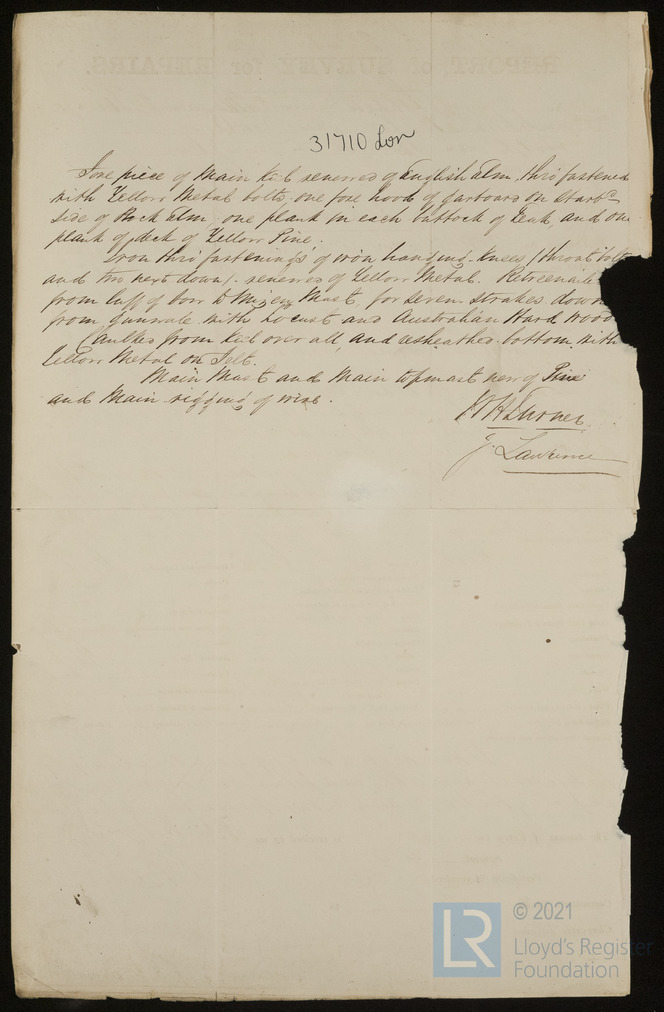 REPORT of SURVEY for REPAIRS.
31710 Lon
Fore piece of Main Keel renewed of English Elm, thro fastened
with Yellow Metal bolts, one fore hood of garboard on Starbd
side of Rock elm, one plank in each buttock of Teak, and one
plank of deck of Yellow Pine.
Iron thro fastenings of iron hanging Knees (throat bolt
and two next down) renewed of Yellow Metal. Retreenailed
from luff of bow to Mizen Mast, for seven strakes down
from gunwale with Locust and Australian Hard wood
Caulked from Keel over all and resheathed bottom with
Yellow Metal on Felt.
Main Mast and Main topmast new of Pine
and Main rigging of wire.
Turner
J. Lawrence
LR
© 2021
Lloyd's Register
Foundation